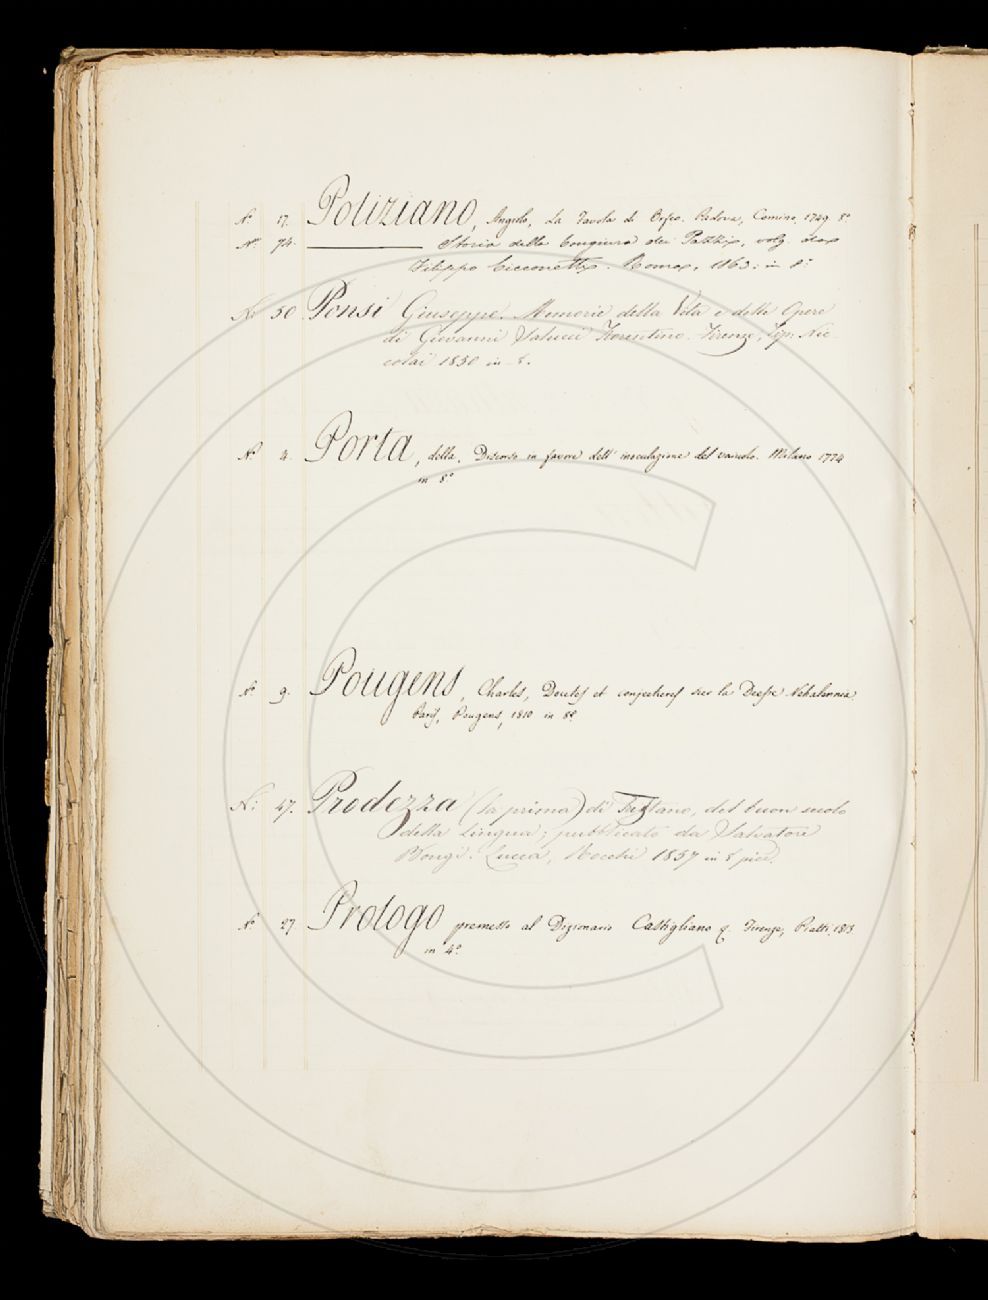 N.° 17. Poliziano, Angelo, La Favola di Orfeo. Padova, Comino, 1749. 8.°
N.° 74. ——— Storia della Congiura dei Pazzi, volg. da
Filippo Cicconetti. Roma, 1863. in 8.°
N.° 50 Ponsi Giuseppe. Memorie della Vita e delle Opere
di Giovanni Salucci Fiorentino. Firenze, Tip. Nic-
colai 1850 in 8.
N.° 4. Porta, della. Discorso in favore dell' inoculazione del vaiuolo. Milano 1774
in 8.°
N.° 9. Pougens, Charles, Doutes et conjectures sur la Deesse Nehalennia.
Paris, Pougens, 1810 in 8.°
N.° 47. Prodezza (la prima) di Tristano, del buon secolo
della Lingua; pubblicato da Salvatore
Bongi. Lucca, Rocchi 1857 in 8 picc.
N.° 27 Prologo premesso al Dizionario Castigliano Firenze, Piatti, 1813.
in 4.°